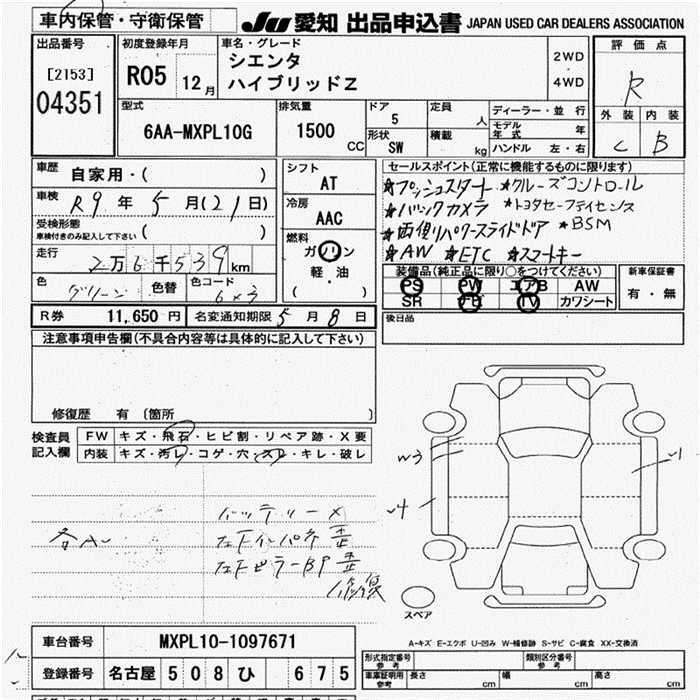 車内保管・守衛保管
JU 愛知 出品申込書 JAPAN USED CAR DEALERS ASSOCIATION
出品番号
[2153]
04351
初度登録年月
R05 12月
車名・グレード
シエンタ
ハイブリッドZ
2WD
・
4WD
評価点
R
外装 内装
C B
型式
6AA-MXPL10G
排気量
1500 CC
ドア
5
形状
SW
定員
人
積載
kg
ディーラー・並行
モデル年式 年
ハンドル 左・右
車歴
自家用・( )
車検
R9 年 5 月(21日)
受検形態
車検付きのみ記入して下さい ( )
走行
2万6千539km
色
グリーン
色替
色コード
6×3
シフト
AT
冷房
AAC
燃料
ガソリン
軽・油
( )
セールスポイント(正常に機能するものに限ります)
★プッシュスタート ★クルーズコントロール
★バックカメラ ★トヨタセーフティセンス
★両側パワースライドドア ★BSM
★AW ★ETC ★スマートキー
装備品(純正品に限り○をつけてください)
PS PW エアB AW
SR ナビ TV カワシート
新車保証書
有・無
R券 11,650円 名変通知期限 5月8日
後日品
注意事項申告欄(不具合内容等は具体的に記入して下さい)
修復歴 有 〔箇所 〕
検査員記入欄
FW キズ・飛石・ヒビ割・リペア跡・X要
内装 キズ・汚レ・コゲ・穴・スレ・キレ・破レ
各A
バッテリーメ
左Fインパネ歪
左FピラーBP歪
修復
w3
スペア
A-キズ E-エクボ U-凹み W-補修跡 S-サビ C-腐食 XX-交換済
車台番号 MXPL10-1097671
登録番号 名古屋 508 ひ 675
形式指定番号
参考
類別区分番号
参考
車庫証明用参考 長さ cm 幅 cm 高さ cm